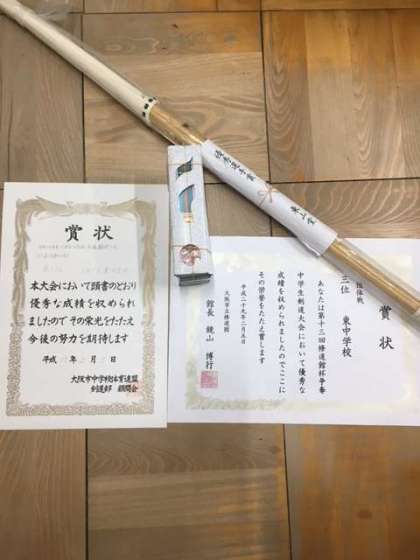 優秀選手賞
東山堂
賞状
本大会において頭書のとおり
優秀な成績を収められ
ましたので その栄光をたたえ
今後の努力を期待します
平成
月
日
大阪市中学校体育連盟
剣道部 顧問会
賞状
団体戦
三位 東中学校
あなたは第十三回修道館杯争奪
中学生剣道大会において優秀な
成績を収められましたのでここに
その栄誉をたたえ賞します
平成二十九年二月五日
大阪市立修道館
館長 鏡山 博行